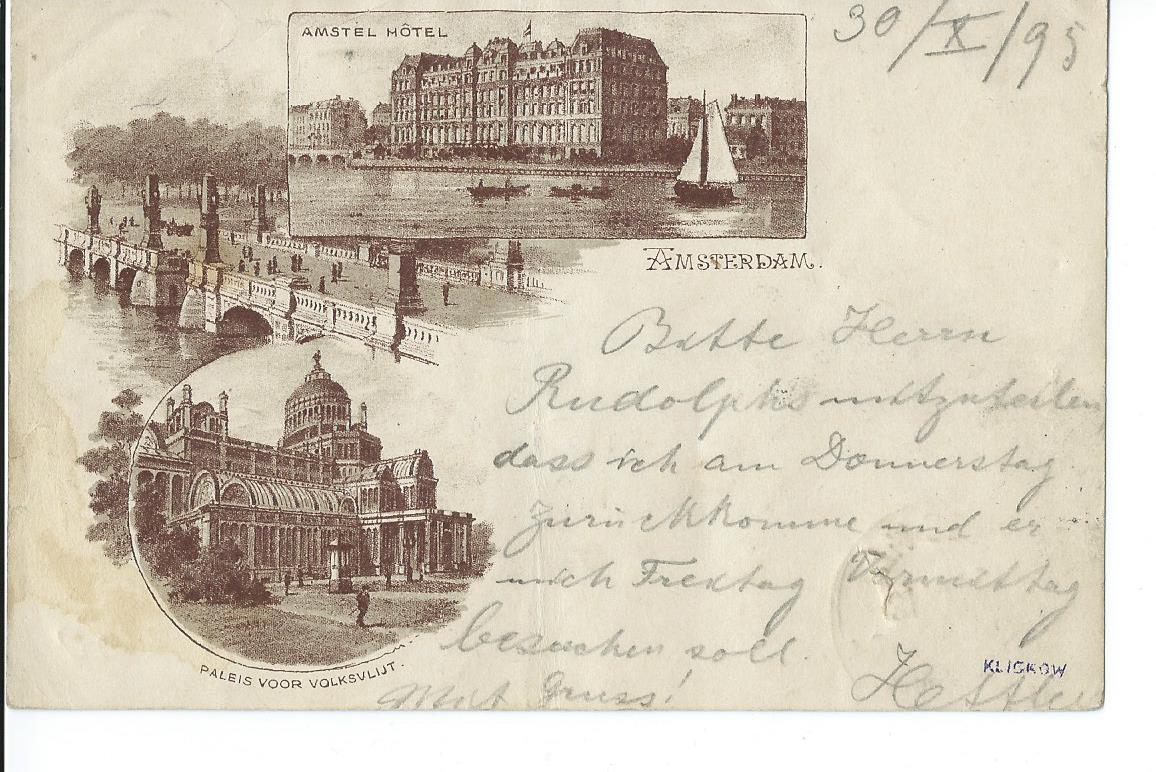 AMSTEL HÔTEL
30/X/95
AMSTERDAM.
Bitte Herrn
Rudolphs mitzuteilen
dass ich am Donnerstag
zurückkomme und er
mich Freitag Vormittag
besuchen soll.
Mit Gruss!
KLISKOW
PALEIS VOOR VOLKSVLIJT.